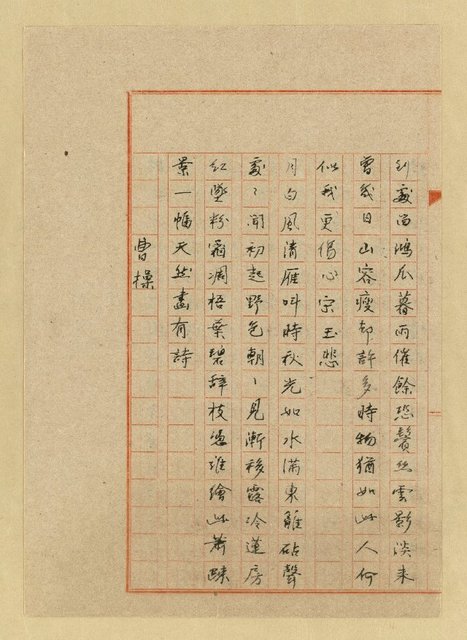 到處留鴻爪暮雨催餘恐鬢絲雲影淡來
曾幾日山容瘦却許多時物猶如此人何
似我更傷心宋玉悲
月白風清雁叫時秋光如水滿東籬砧聲
處々聞初起野色朝々見漸移露冷蓮房
紅墜粉霜凋梧葉碧辭枝憑誰繪此蕭疎
景一幅天然畫有詩
曹操